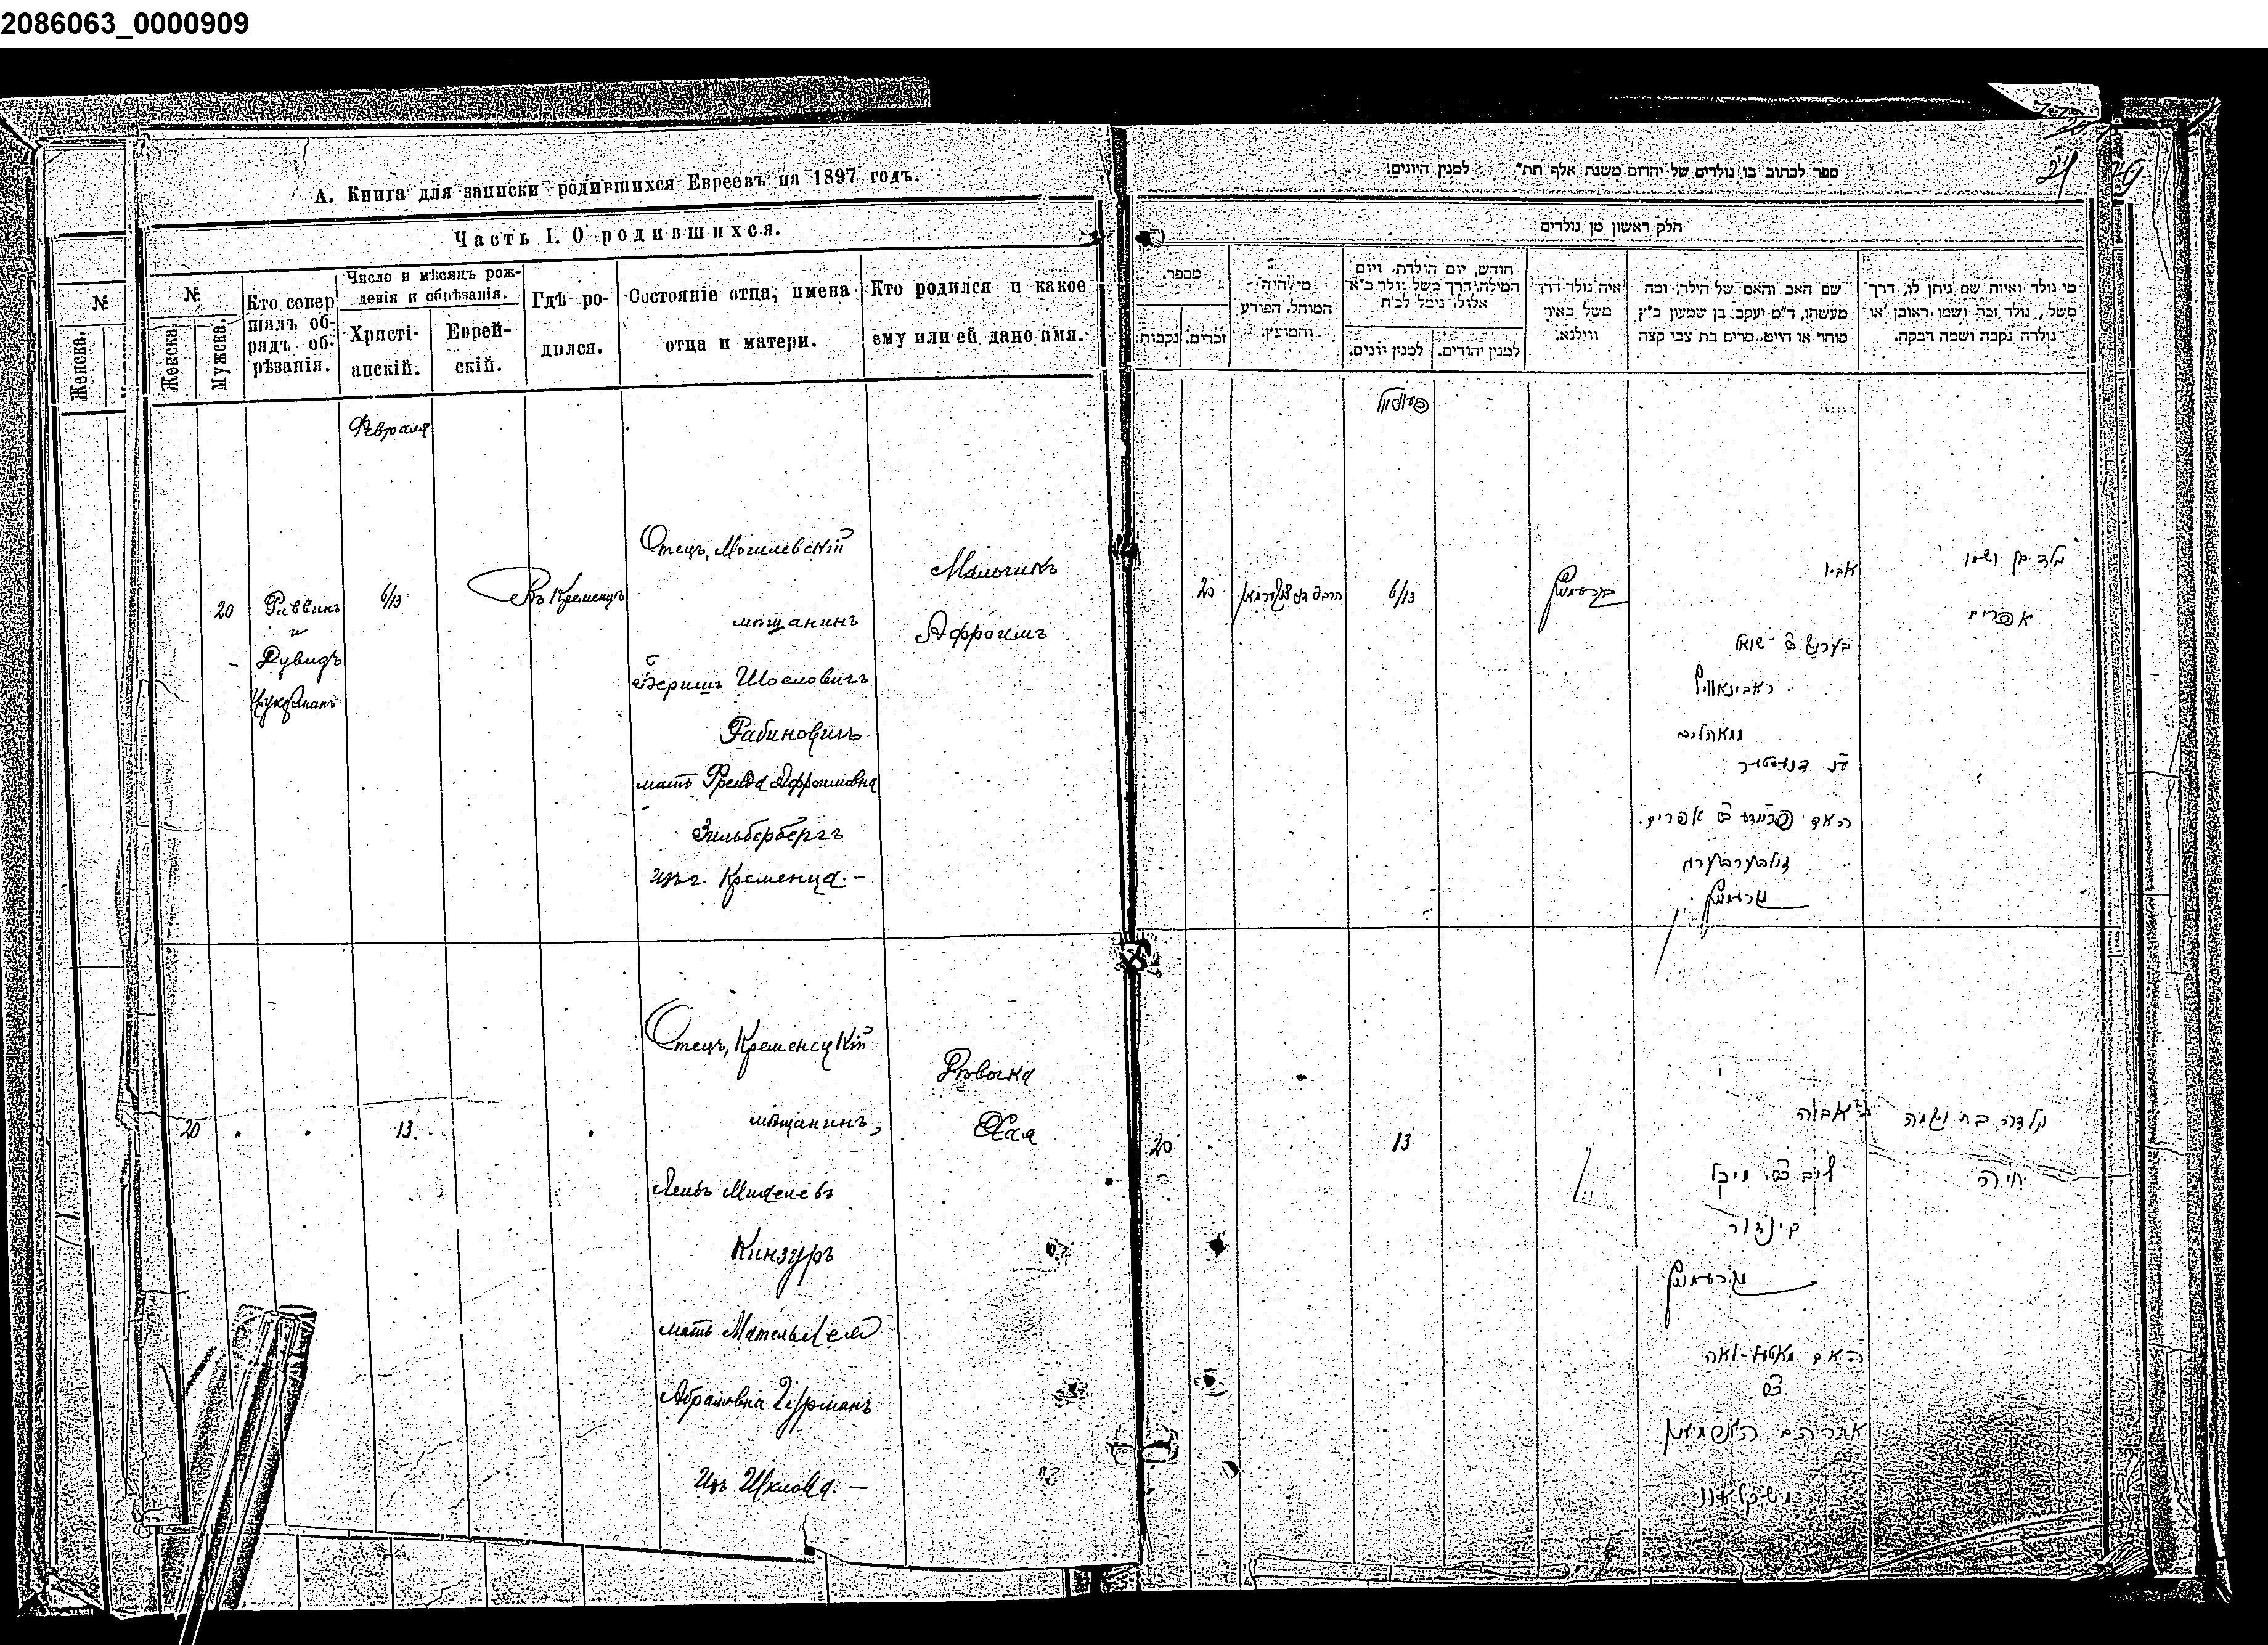 2086063_0000909
А. Книга для записки родившихся Евреевъ на 1897 годъ.
Часть I. О родившихся.
№
Женска.
№
Женска.
Мужска.
Кто совер
шалъ об-
рядъ об-
рѣзанія.
Число и мѣсяцъ рож-
денія и обрѣзанія.
Христі-
анскій.
Еврей-
скій.
Гдѣ ро-
дился.
Состояніе отца, имена
отца и матери.
Кто родился и какое
ему или ей дано имя.
Февраля
20
Раввинъ
и
6/13
Въ Кременцѣ
Отецъ, Могилевскій
мѣщанинъ
Бериш Шоелович
Рабиновичъ
мать Фрейда Афроимовна
Зильбербергъ
изъ г. Кременца. —
Мальчикъ
Афроимъ
20
13.
Отецъ, Кременецкій
мѣщанинъ,
Лейбъ Михелевъ
Кинзуръ
мать
Абрамовна
Изъ Шклова. —
Дѣвочка
Хая
ספר לכתוב בו נולדים של יהודים משנת אלף תת״ למנין היונים.
21
חלק ראשון מן נולדים
מספר.
נקבות
זכרים.
מי היה
המוהל, הפורע
והמוצץ.
חודש, יום הולדת, ויום
המילה, דרך משל נולד כ״א
אלול, נימל לכ״ח
למנין יונים.
למנין יהודים.
איה נולד דרך
משל באיר
ווילנא.
שם האב והאם של הילד, ומה
מעשהו, ד״מ יעקב בן שמעון כ״ץ
סוחר או חייט, מרים בת צבי קצה
מי נולד ואיזה שם ניתן לו, דרך
משל, נולד זכר ושמו ראובן או
נולדה נקבה ושמה רבקה.
20
6/13
אביו
ראבינאוויץ
האם
זילבערבערג
קרעמניץ
נולד בן ושמו
אפרים
20
13
קינזור
קרעמניץ
האם
אברהם
נולדה בת ושמה
חיה